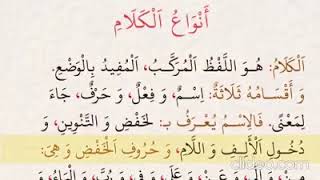 أَنْوَاعُ اَلْكَلَامِ
اَلْكَلَامُ: هُوَ اَللَّفْظُ اَلْمُرَكَّبُ، اَلْمُفِيدُ بِالْوَضْعِ.
وَ أَقْسَامُهُ ثَلَاثَةٌ: اِسْمٌ، وَ فِعْلٌ، وَ حَرْفٌ، جَاءَ
لِمَعْنًى. فَالِاسْمُ يُعْرَفُ بـ: لْخَفْضِ وَ التَّنْوِينِ، وَ
دُخُولِ اَلْأَلِفِ وَ اللَّامِ، وَ حُرُوفِ اَلْخَفْضِ وَ هِيَ:
مِنْ، وَ إِلَى، وَ عَنْ، وَ عَلَى، وَ فِي، وَ رُبَّ، وَ الْبَاءُ، وَ